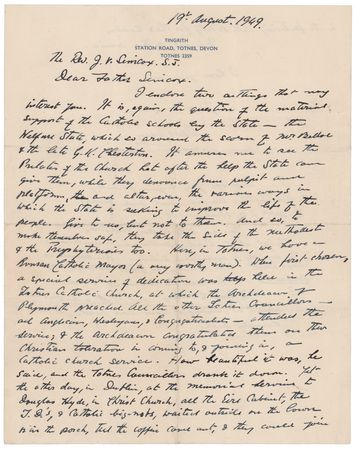 19th August. 1949.
TINGRITH
STATION ROAD, TOTNES, DEVON
TOTNES 2259
The Rev. J. V. Simcox. S.J.
Dear Father Simcox.
I enclose two cuttings that may
interest you. It is, again, the question of the material
support of the Catholic schools by the State — the
Welfare State, which so aroused the scorn of Mr Belloc
& the late G. K. Chesterton. It amuses me to see the
Prelates of the Church hot after the help the State can
give them, while they denounce from pulpit and
platform, and altar, even, the various ways in
which the State is seeking to improve the life of the
people. Give to us, but not to them. And so, to
make themselves safe, they take the side of the Methodist
& the Presbyterians too. Here, in Totnes, we have a
Roman Catholic Mayor (a very worthy man). When first chosen,
a special service of dedication was held in the
Totnes Catholic Church, at which the Archdeacon of
Plymouth preached. All the other Totnes Councillors —
all Anglicans, Wesleyans, & Congregationalists — attended the
service, & the Archdeacon congratulated them on their
Christian toleration in coming to, & joining in, a
Catholic Church service. How beautiful it was, he
said, and the Totnes Councillors drank it down. Yet
the other day, in Dublin, at the memorial service to
Douglas Hyde, in Christ Church, all the Eire Cabinet, the
T.D's, & Catholic big-nobs, waited outside on the lawn
in the porch, till the coffin came out, & they could join